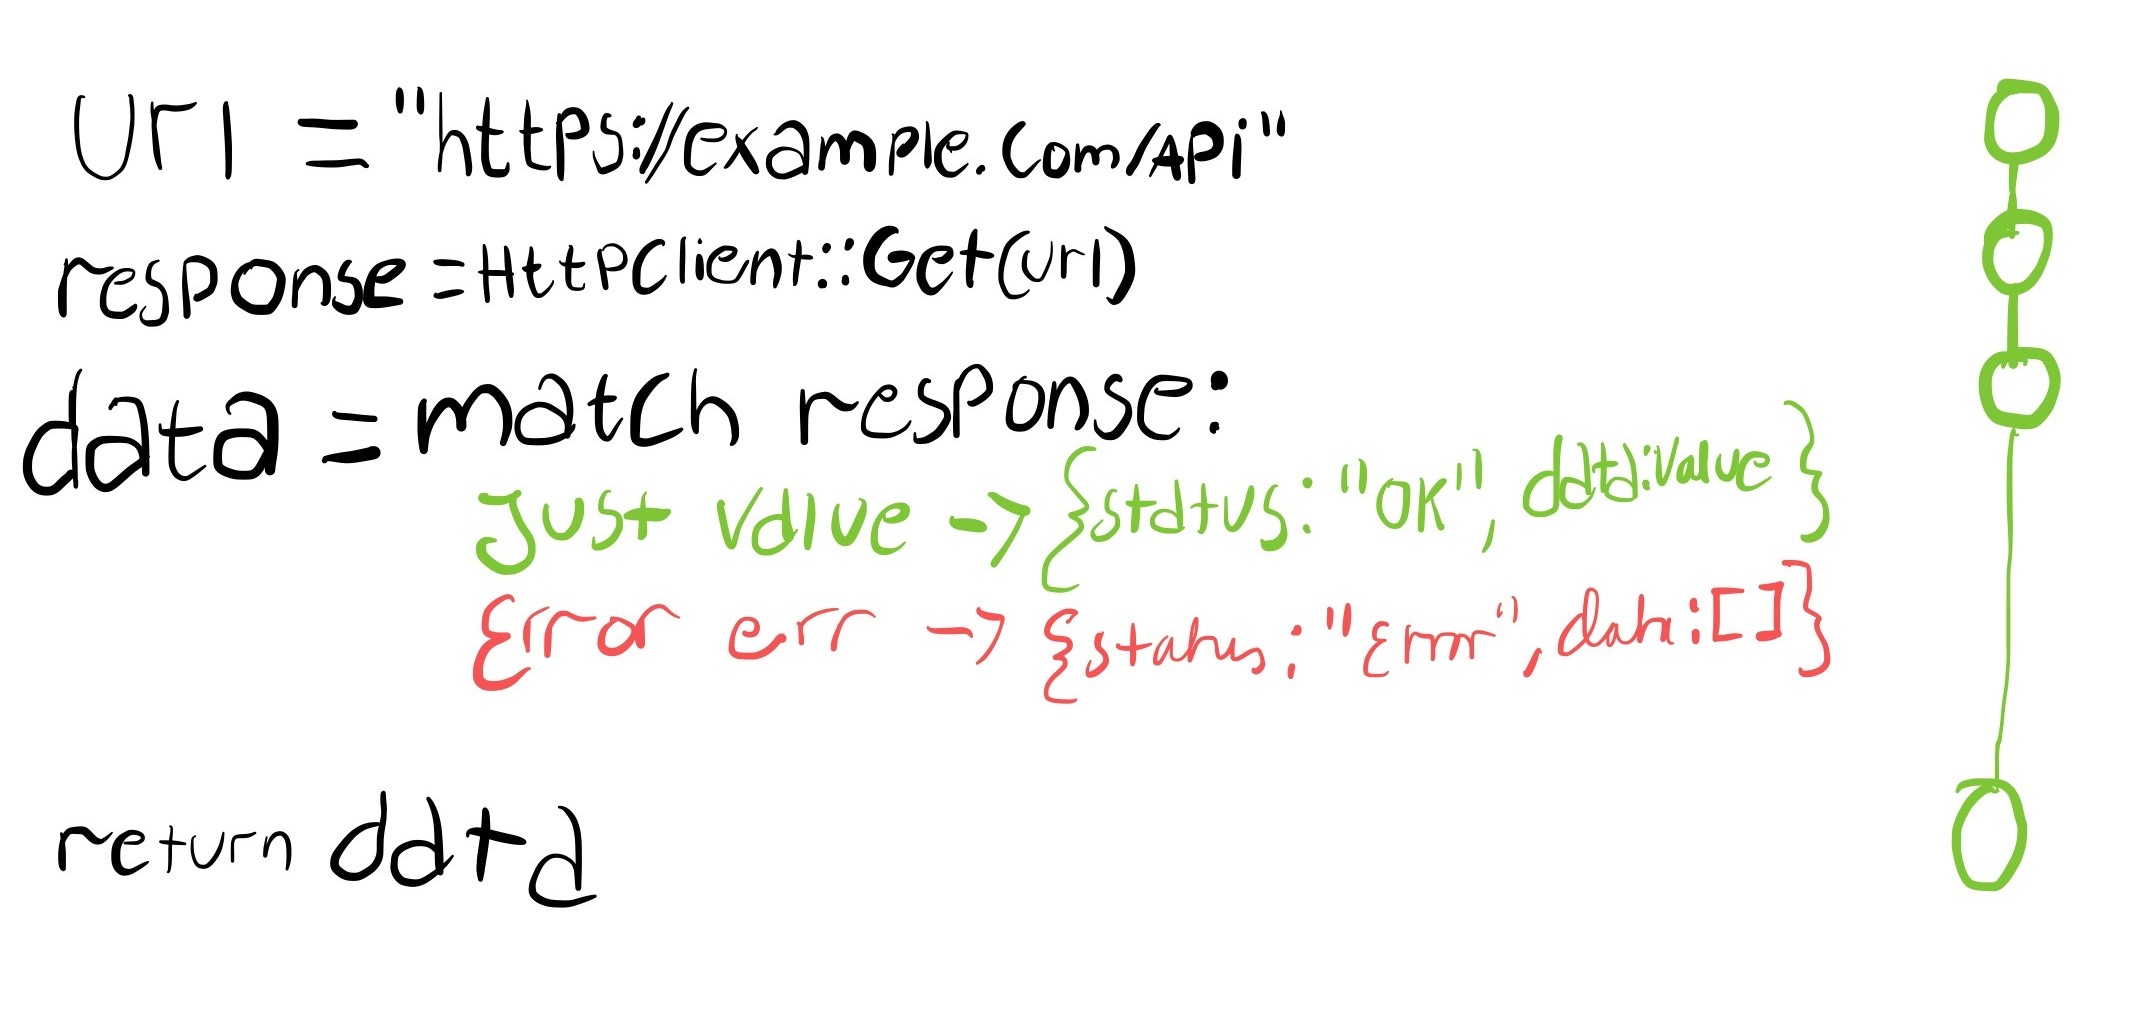 url = "https://example.com/APi"
response = HttpClient::Get(url)
data = match response:
Just value -> {status: "OK", data:value}
Error err -> {status: "Error", data:[]}
return data